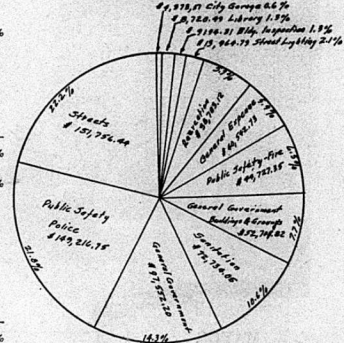 $4,373.17 City Garage 0.6%
$8,720.49 Library 1.3%
$9194.81 Bldg. Inspection 1.3%
$13,464.79 Street Lighting 2.1%
Recreation
General Expense
6.5%
Public Safety-Fire
$44,727.35
General Government
Buildings & Grounds
$52,704.02
7.7%
Sanitation
$72,734.06
10.6%
General Government
$97,552.20
14.3%
Public Safety
Police
$149,216.75
21.8%
Streets
$151,756.44
22.2%
%
%
%
%